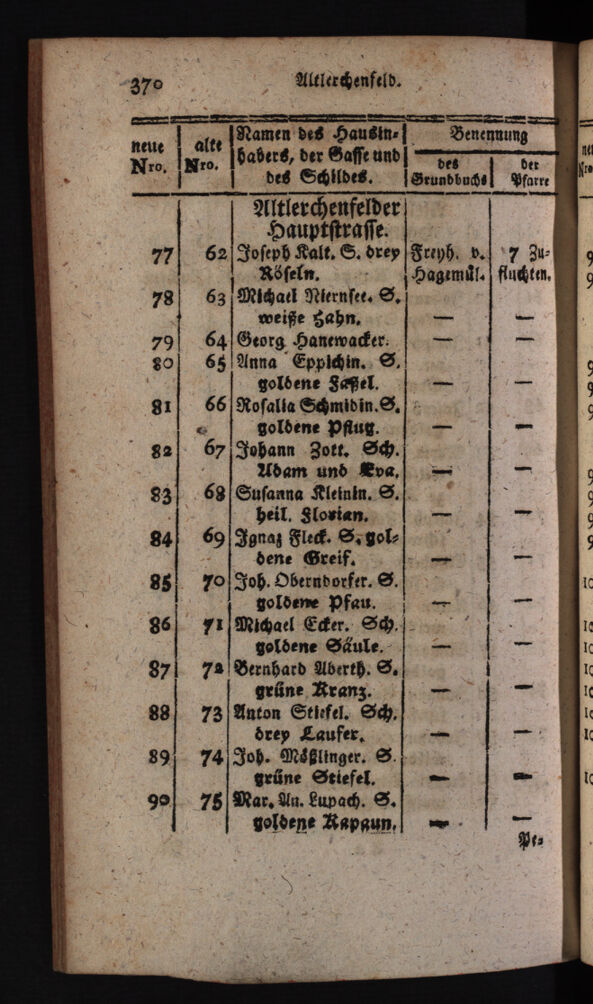 370 Altlerchenfeld.
neue Nro. alte Nro. Namen des Hausin- Benennung
habers, der Gasse und des der
des Schildes. Grundbuchs Pfarre
Altlerchenfelder
Hauptstrasse.
77 62 Joseph Kalt. S. drey Freyh. v. 7 Zu-
Röseln. Hagemül. fluchten.
78 63 Michael Niernsee. S.
weiße Hahn. — —
79 64 Georg Hanewacker. — —
80 65 Anna Eppichin. S.
goldene Faßel. — —
81 66 Rosalia Schmidin. S.
goldene Pflug. — —
82 67 Johann Zott. Sch.
Adam und Eva. — —
83 68 Susanna Kleinin. S.
heil. Florian. — —
84 69 Ignaz Fleck. S. gol-
dene Greif. — —
85 70 Joh. Oberndorfer. S.
goldene Pfau. — —
86 71 Michael Ecker. Sch.
goldene Säule. — —
87 72 Bernhard Aberth. S.
grüne Kranz. — —
88 73 Anton Stiefel. Sch.
drey Laufer. — —
89 74 Joh. Mößlinger. S.
grüne Stiefel. — —
90 75 Mar. An. Lupach. S.
goldene Kapaun. — —
Pe-